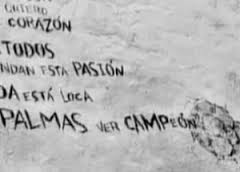 QUIERO
CORAZÓN
TODOS
NDAN ESTA PASIÓN
DA ESTÁ LOCA
PALMAS VER CAMPEÓN